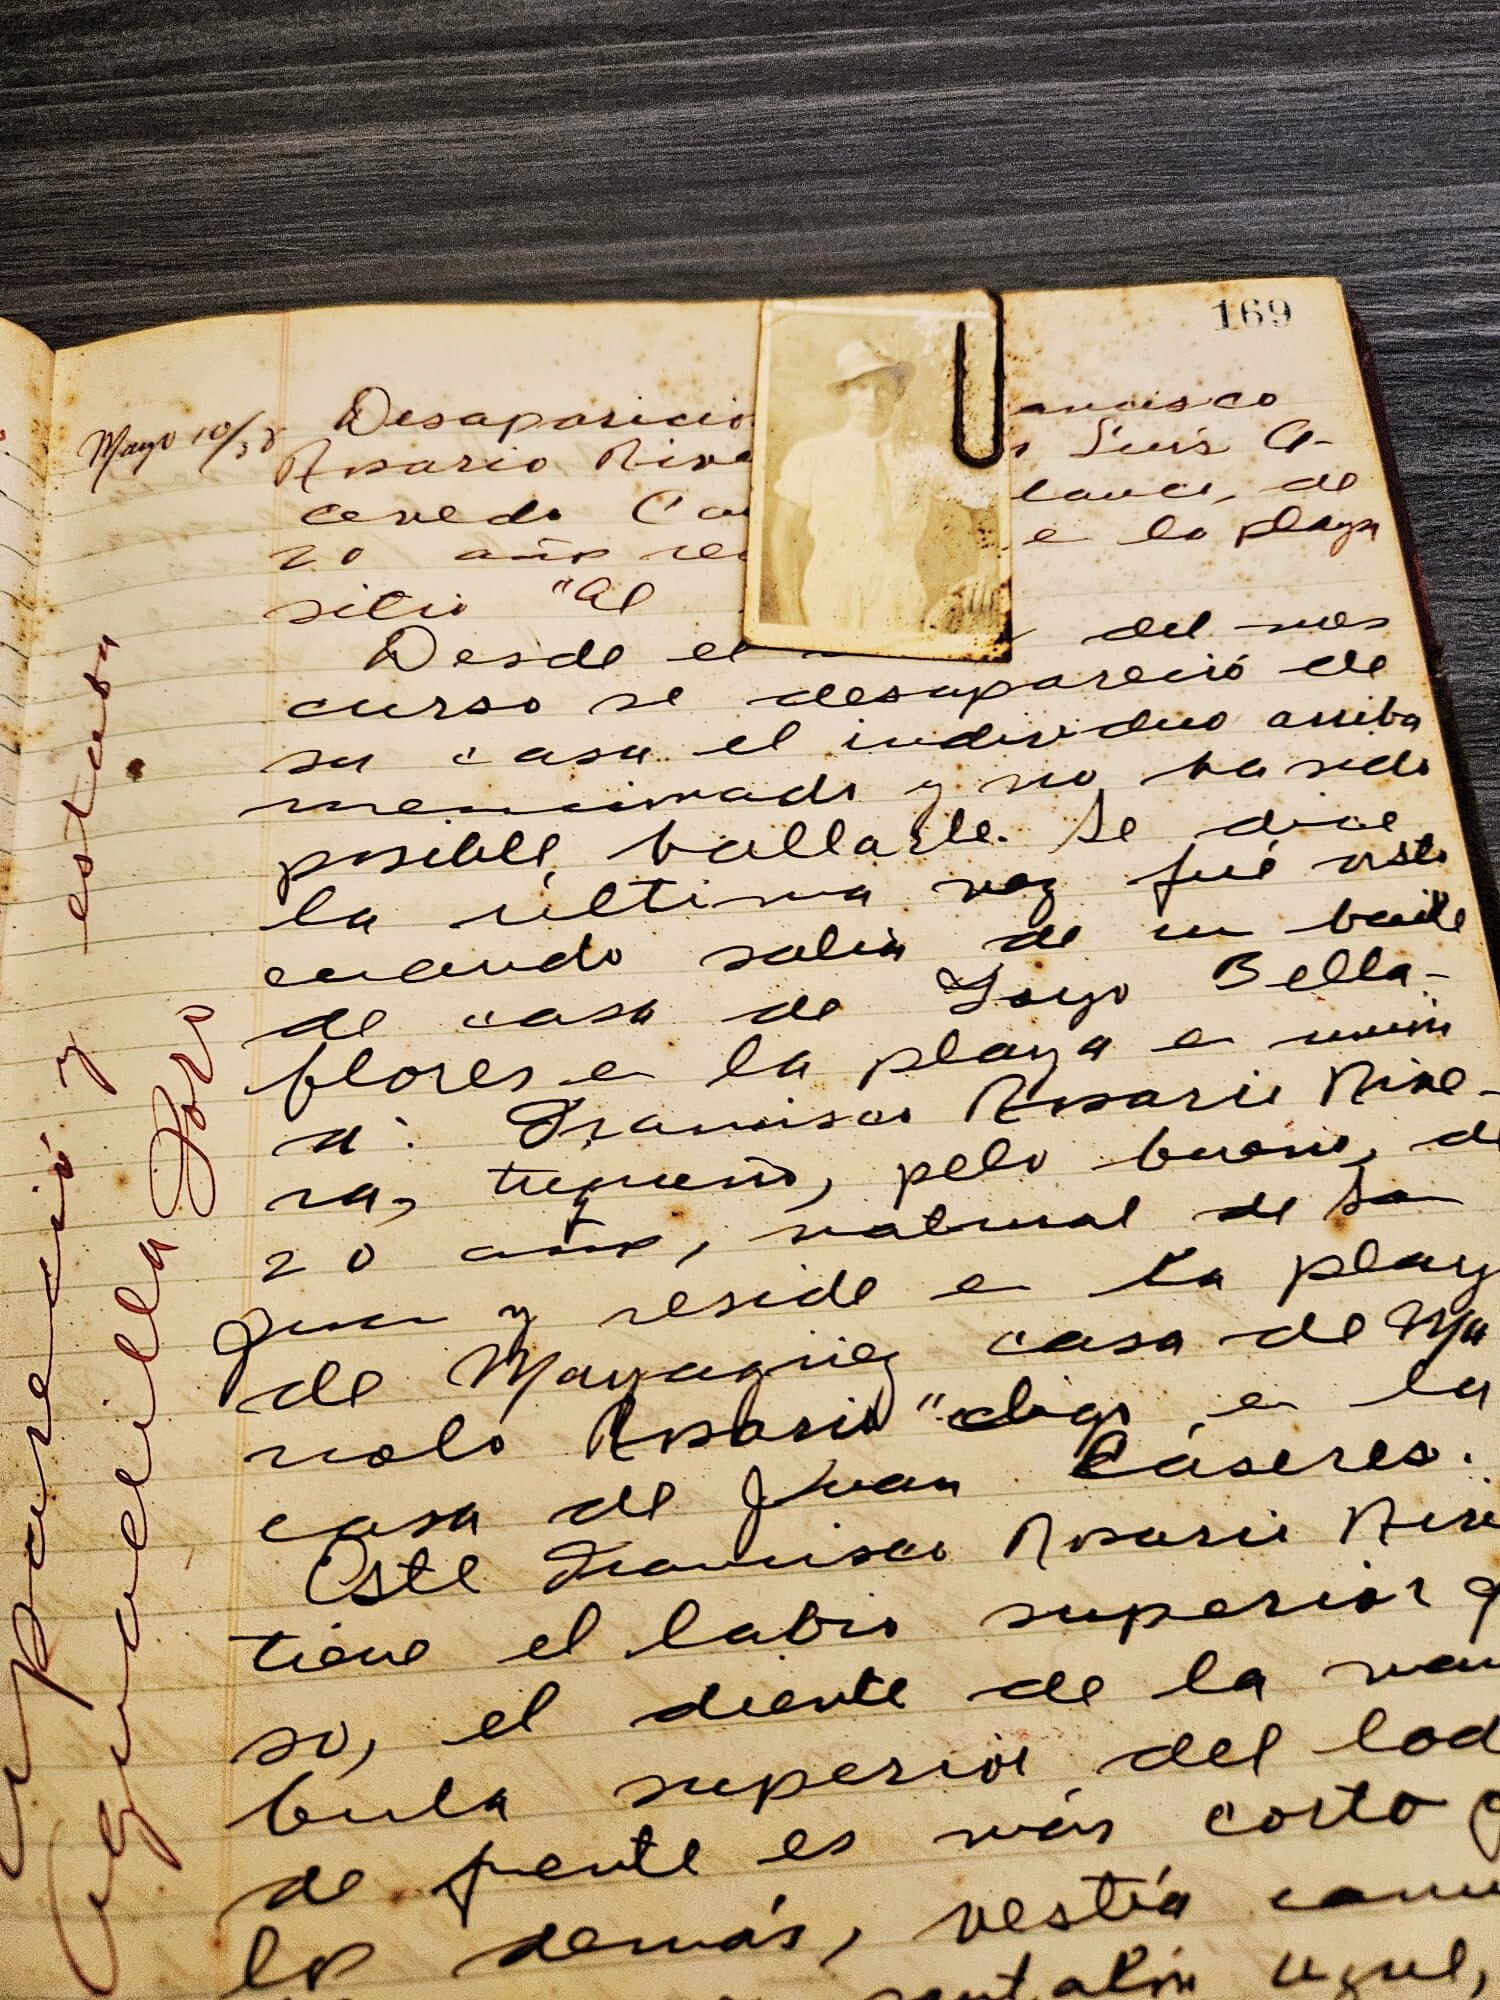 169
Mayo 10/38
Desaparicio
ancisco
Rosario Rive
Luis A-
cevedo Ca
de
20 años re
e la playa
sitio "El
Desde el del mes
curso se desapareció de
su casa el individuo arriba
mencionado y no ha sido
posible hallarle. Se dice
la última vez fué visto
cuando salia de un baile
de casa de Goyo Bella-
flores en la playa en unión
a: Francisco Rosario Rive-
ra, trigueño, pelo bueno, de
20 años, natural de San
Juan y reside en la play
de Mayagüez casa de Ma
nolo Rosario "digo en la
casa de Juan Cáseres.
Este Francisco Rosario Rive
tiene el labio superior g
so, el diente de la man
bula superior del lad
de frente es más corto q
los demás, vestía cami
pantalón azul,
apareció y estaba
Aguadilla Toro